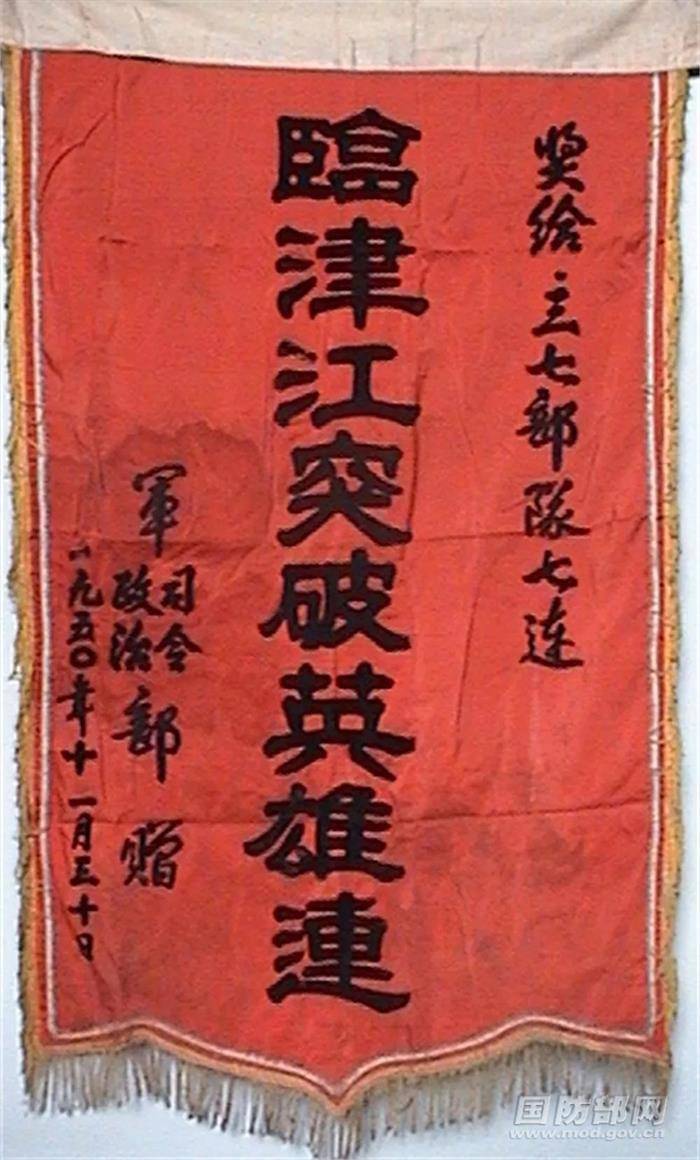 奖给三七部隊七连
臨津江突破英雄連
軍司令政治部赠
一九五〇年十一月三十日
国防部网
www.mod.gov.cn